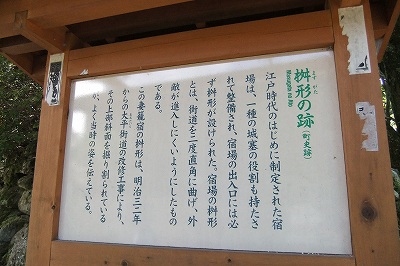 桝形の跡(町史跡)
江戸時代のはじめに制定された宿
場は、一種の城塞の役割も持たさ
れて整備され、宿場の出入口には必
ず桝形が設けられた。宿場の桝形
とは、街道を二度直角に曲げ、外
敵が進入しにくいようにしたもの
である。
この妻籠宿の桝形は、明治三二年
からの大平街道の改修工事により、
その上部斜面を掘り割られている
が、よく当時の姿を伝えている。